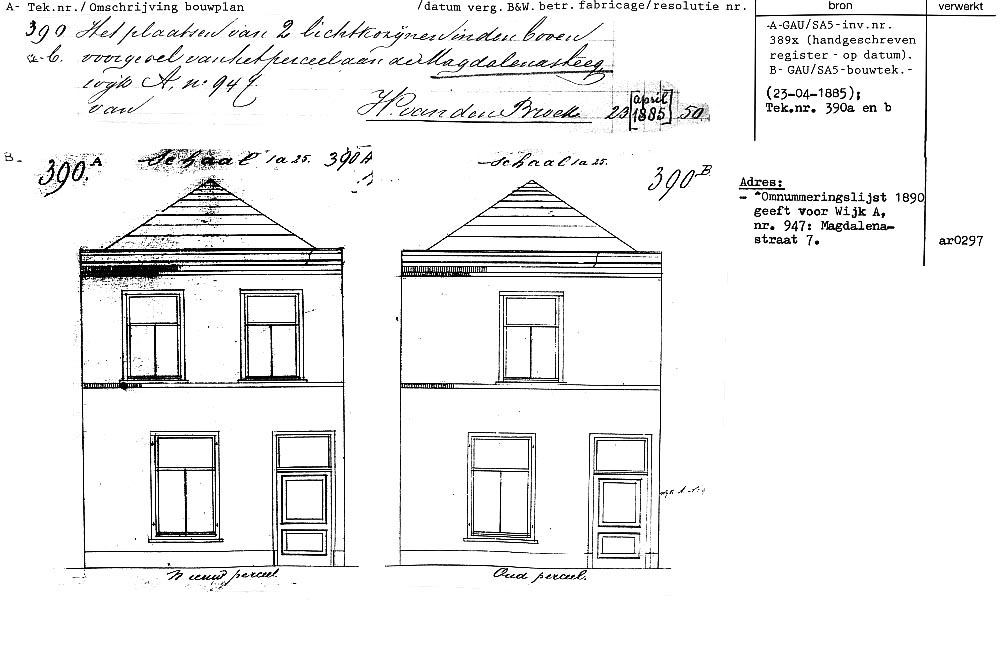 A- Tek.nr./ Omschrijving bouwplan /datum verg. B&W. betr. fabricage/resolutie nr.
bron
verwerkt
390 Het plaatsen van 2 lichtkozijnen in den boven
a-b. voorgevel van het perceel aan de Magdalenasteeg
wijk A, nº 947
van H. van den Broek 23 [april 1885] 50.
-A-GAU/SA5-inv.nr.
389x (handgeschreven
register - op datum).
B- GAU/SA5-bouwtek.-
(23-04-1885);
Tek.nr. 390a en b
B-
390.A
Schaal 1 a 25.
390A
Schaal 1 a 25.
390B
Adres:
- *Omnummeringslijst 1890
geeft voor Wijk A,
nr. 947: Magdalena-
straat 7.
ar0297
Nieuw perceel.
Oud perceel.